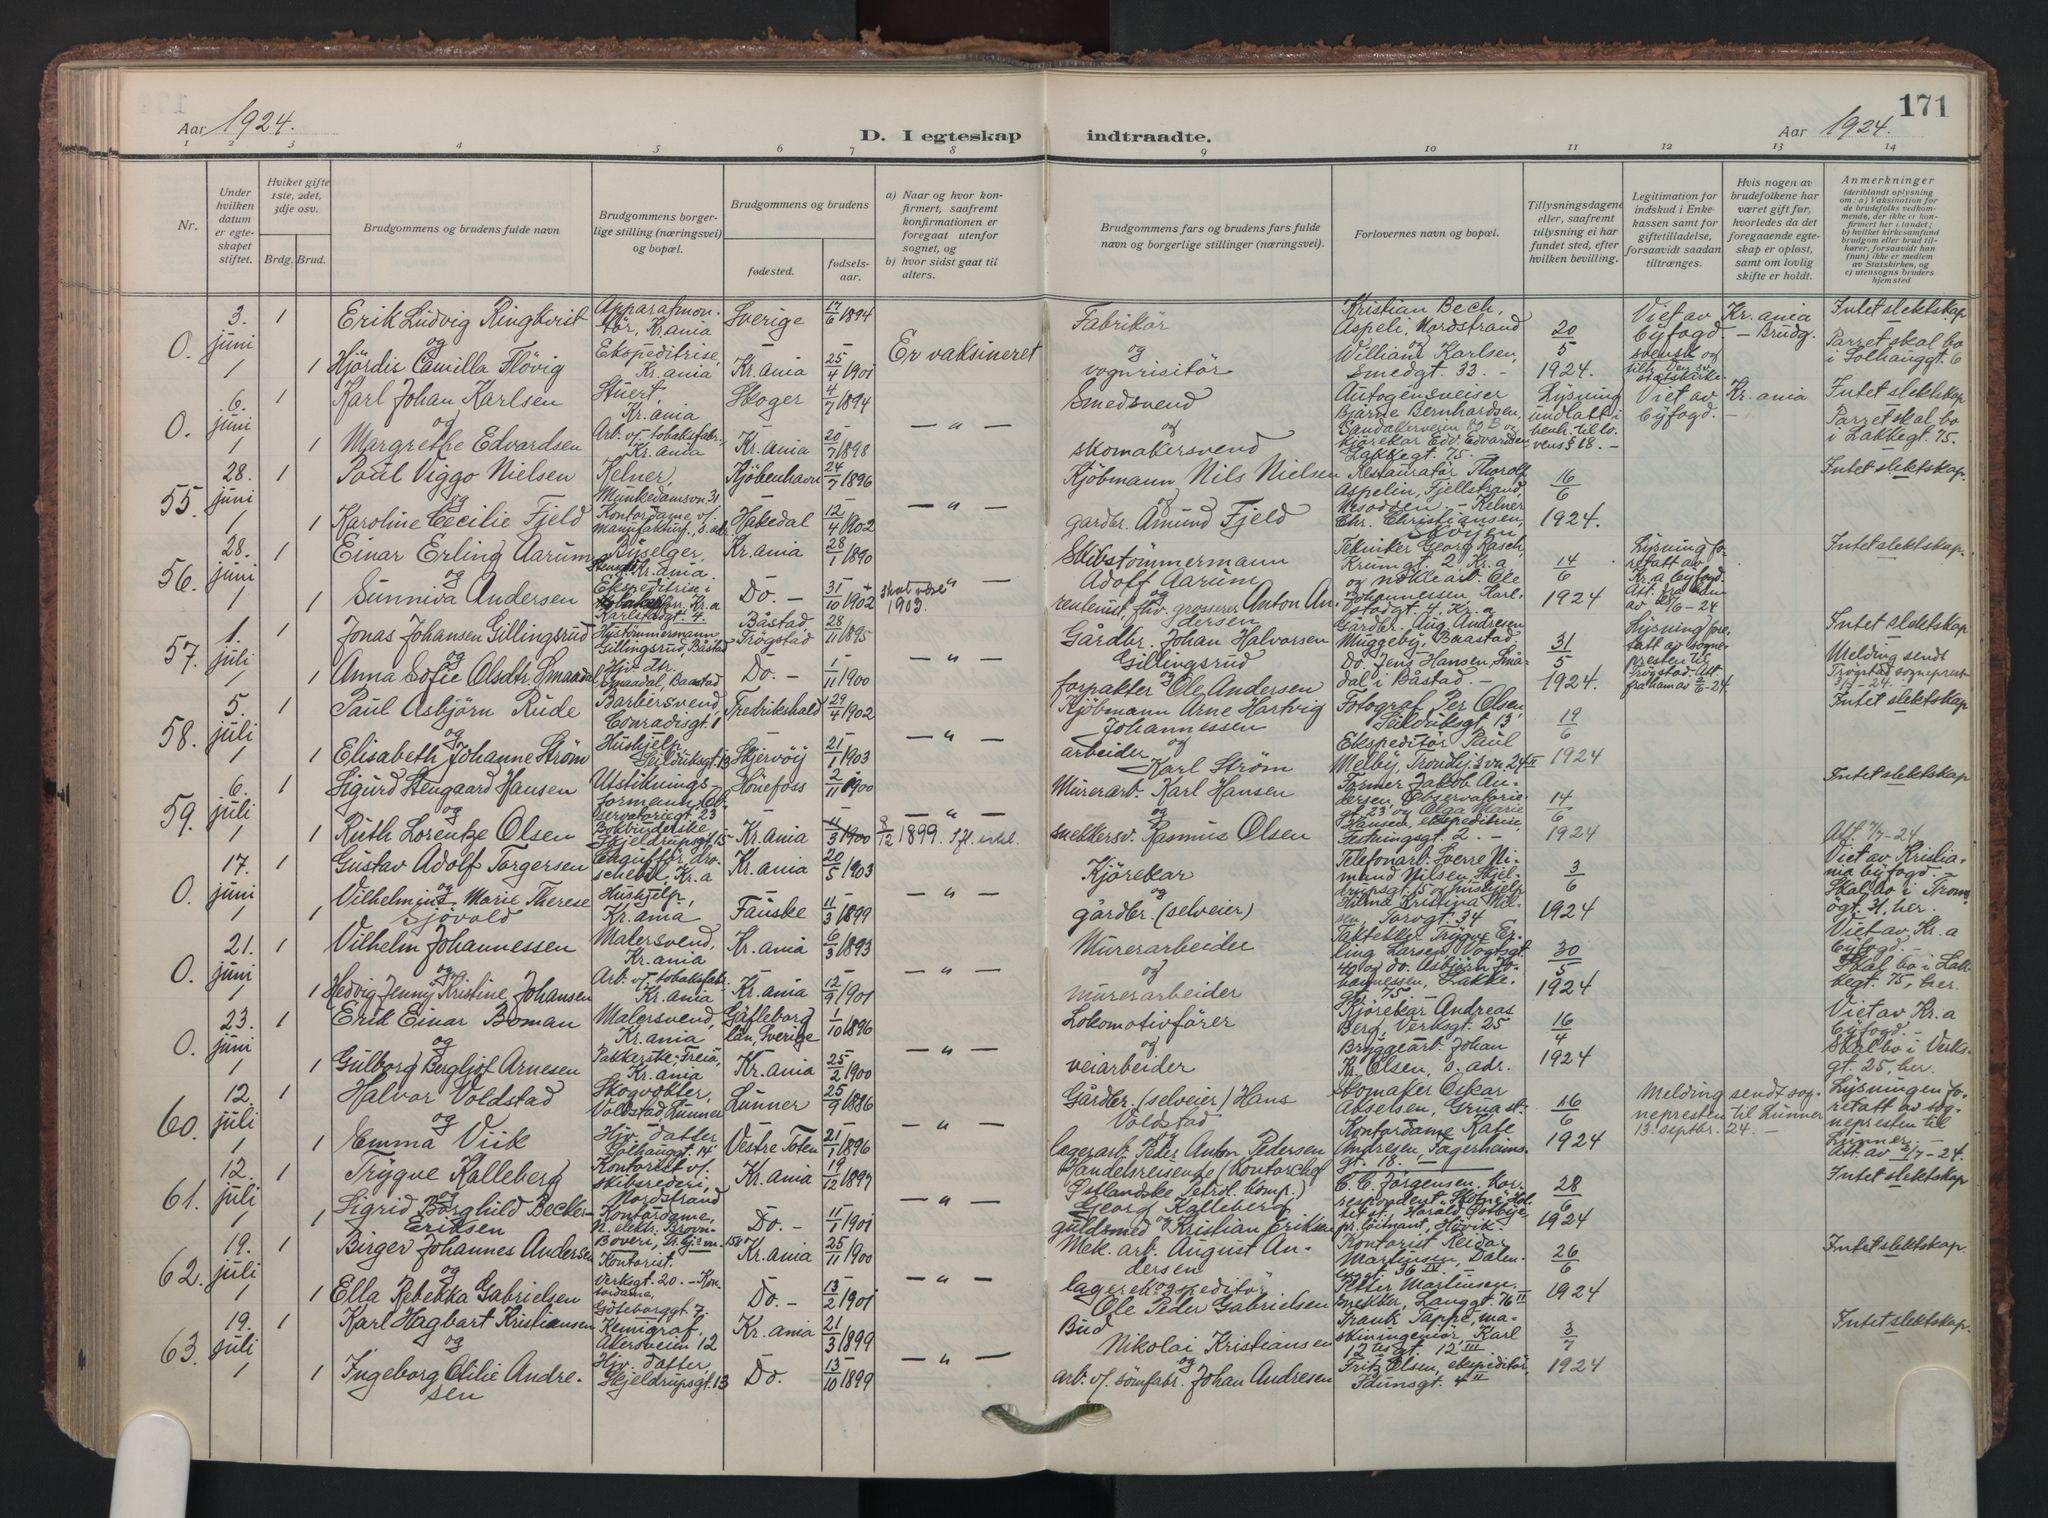 Aar 1924.
D. I egteskap indtraadte.
Aar 1924.
171
1 2 3 4 5 6 7 8 9 10 11 12 13 14
Nr.
Under hvilken datum er egteskapet stiftet.
Hviket gifte 1ste, 2det, 3dje osv.
Brdg. Brud.
Brudgommens og brudens fulde navn
Brudgommens borgerlige stilling (næringsvei) og bopæl.
Brudgommens og brudens
fødested.
fødselsaar.
a) Naar og hvor konfirmert, saafremt konfirmationen er foregaat utenfor sognet, og
b) hvor sidst gaat til alters.
Brudgommens fars og brudens fars fulde navn og borgerlige stillinger (næringsvei).
Forlovernes navn og bopæl.
Tillysningsdagene eller, saafremt tillysning ei har fundet sted, efter hvilken bevilling.
Legitimation for indskud i Enkekassen samt for giftetilladelse, forsaavidt saadan tiltrænges.
Hvis nogen av brudefolkene har været gift før, hvorledes da det foregaaende egteskap er opløst, samt om lovlig skifte er holdt.
Anmerkninger
(deriblandt oplysning om: a) Vaksination for de brudefolks vedkommende, der ikke er konfirmert her i landet; b) hvilket kirkesamfund brudgom eller brud tilhører, forsaavidt han (hun) ikke er medlem av Statskirken, og c) utensogns bruders hjemsted
0. 3. juni 1 Erik Ludvig Ringkvist Apparatmontør, Kr.ania Sverige 17/6 1894 Fabrikör Kristian Bech, Aspeli, Nordstrand 20/5 1924. Viet av Kr.ania Byfogd. — Brudg. svensk og Intet slektskap
og
1 Hjördis Camilla Flövig Ekspeditrise, Kr.ania Kr.ania 25/4 1901 Er vaksineret vognvisitör og William Karlsen, Smedgt. 33. — Parret skal bo i Solhauggt. 6
0. 6. juni 1 Karl Johan Karlsen Stuert, Kr.ania Skoger 4/7 1894 Smedsvend Autogensveiser Bjarne Bernhardsen, Lysning undlatt i henh. til lovens § 18. — Viet av Kr.ania Byfogd. — Intet slektskap
og
1 Margrethe Edvardsen Arb. v/ tobaksfabr. Kr.ania Kr.ania 20/7 1898 — " — skomakersvend kjörekar Edv. Edvardsen Lakkegt. 75. — Parret skal bo i Lakkegt. 75.
55. 28. juni 1 Poul Viggo Nielsen Kelner, Munkedamsvn. 31 Kjöbenhavn 24/7 1896 Kjöbmann Nils Nielsen Restauratör Thorolf Aspelin, Fjellstrand, Nesodden — Kelner 16/6 1924. Intet slektskap.
og
1 Karoline Cecilie Fjeld Kontordame v. Manufakturf., s. adr. Hakedal 12/4 1902 — " — gardbr. Amund Fjeld Chr. Christiansen,
56. 28. juni 1 Einar Erling Aarum Byselger, Kr.ania. Kr.ania 28/1 1890 Skibstömmermann Adolf Aarum Tekniker Georg Rasch, Krumgt. 2 Kr.a 14/6 1924 Lysning foretatt av Kr.a Byfogd. Intet slektskap.
og
1 Sunniva Andersen Ekspeditrise i Kr.a Karlstadgt. 4. Do. — 31/10 1902 skal være 1903. — " — rentenist, fhv. grosserer Anton Andersen Johannessen, Karlstadgt. 4. Kr.a
57. 1. juli 1 Jonas Johansen Gillingsrud Hustömmermann Gillingsrud, Båstad Båstad Trögstad 28/11 1895 Gårdbr. Johan Halvorsen Gillingsrud Gårdbr. Aug. Andresen Muggeby, Baastad 31/5 1924. Lysning foretatt av sognepresten til Trögstad. Att. fra ham av 2/6-24. Intet slektskap
og
1 Anna Sofie Olsdtr. Smaadal Hjv. dtr. Smaadal, Baastad Do. — 1/11 1900 — " — forpakter Ole Andersen Do. Jens Hansen, Smådal i Båstad. — Melding sendt Trögstad sogneprest
58. 5. juli 1 Paul Asbjörn Rude Barbersvend, Conradisgt. 1 Fredrikshald 29/4 1902 Kjöbmann Arne Hartvig Johannessen Fotograf Per Olsen, 19/6 1924 Intet slektskap
og
1 Elisabeth Johanne Ström Hushjelp, Skjervöy 21/1 1903 — " — arbeider Karl Ström Ekspeditör Paul Melby, Trondhj.s vn. 24 II
59. 6. juli 1 Sigurd Stengaard Hansen Utstikningsformann, Observatoriegt. 23 Hönefoss 2/11 1900 Murerarb. Karl Hansen Former Jakob Andersen, Observatoriegt. 23 og Olga Marie Hansen, ekspeditrise, 14/6 1924 Intet slektskap
og
1 Ruth Lorentze Olsen Bokbinderske, Skjeldrupsgt. 15 Kr.ania 11/3 1900 — " — 8/12 1899. snekkersv. Rasmus Olsen Festningsgt. 2. —
0. 17. juni 1 Gustav Adolf Torgersen Chaufför, droschebil, Kr.a Kr.ania 20/5 1903 Kjörekar Telefonarb. Sverre Nimund Nilsen, Skjeldrupsgt. 15 og hushjelp 3/6 1924 Viet av Kristiania Byfogd. — Skal bo i Tromsögt.
og
1 Vilhelmine Marie Therese Sjövold Hushjelp, Kr.ania Fauske 11/3 1899 — " — gårdbr. (selveier) Hilma Kristina Nilsen, Torvgt. 34
0. 21. juni 1 Vilhelm Johannessen Malersvend, Kr.ania Kr.ania 6/3 1893 Murerarbeider Taktekker Trygve Erling Larsen, Vogtsgt. 30/5 1924 Viet av Kr.a Byfogd. —
og
1 Hedvig Jenny Kristine Johansen Arb. v/ tobaksfabr. Kr.ania Kr.ania 12/9 1901 — " — murerarbeider og do. Asbjörn Johannessen, Lakkegt. 75 Skal bo i Lakkegt. 75, her.
0. 23. juni 1 Erik Einar Boman Malersvend, Kr.ania Gäfleborg län, Sverige 1/10 1896 Lokomotivförer Kjörekar Andreas Berg, Verksgt. 25 16/4 1924 Viet av Kr.a Byfogd. —
og
1 Gulborg Bergljot Arnesen Pakkerske Freia, Kr.ania Kr.ania 25/2 1900 — " — veiarbeider Bryggearb. Johan Kr. Olsen, s. adr. Skal bo i Verksgt. 25, her.
60. 12. juli 1 Halvor Voldstad Skogvokter, Voldstad Lunner Lunner 25/9 1896 Gårdbr. (selveier) Hans Voldstad Skomaker Oskar Abselsen, Grua st. 16/6 1924 Melding sendt sognepresten til Lunner 13. septbr. 24. — Lysningen foretatt av sognepresten til Lunner. —
og
1 Emma Viik Hjv. datter, Solhauggt. 14 Vestre Toten 21/1 1896 — " — lagerarb. Peder Anton Pedersen Kontordame Kate Andresen, Fagerheimsgt. 18. —
61. 12. juli 1 Trygve Kalleberg Kontorist v/ skibsrederi, Nordstrand Kr.ania 19/12 1897 Handelsreisende (Kontorchef Østlandske Petrol. Komp.) Georg Kalleberg C. C. Jörgensen, Korrespondent 28/6 1924 Intet slektskap
og
1 Sigrid Borghild Becker-Eriksen Kontordame, N. elektr. Brovn-Boveri, Do. — 11/1 1901 — " — guldsmed Kristian Eriksen Harald Östbye, pr. löitnant, Hövik
62. 19. juli 1 Birger Johannes Andersen Kontorist. Verksgt. 20. — Kr.ania 25/11 1900 Mek. arb. August Andersen Kontorist Reidar Martinsen, Dalenenggt. 36 IV. — 26/6 1924 Intet slektskap.
og
1 Ella Rebekka Gabrielsen Kontordame, Göteborggt. 7. Do. — 13/2 1901 — " — lagerekspeditör Ole Peder Gabrielsen Petter Martinsen, snekker, Langgt. 76 II
63. 19. juli 1 Karl Hagbart Kristiansen Kemigraf, Akersveien 12 Kr.ania 21/3 1899 Bud Nikolai Kristiansen Frank Tappe, maskiningeniör, Karl 12tes gt. 12 III 3/7 1924 Intet slektskap.
og
1 Ingeborg Otilie Andresen Hjv. datter, Skjeldrupsgt. 13 Do. 13/10 1899 — " — arb. v/ sömfabr. Johan Andresen Fritz Olsen, ekspeditör, Idunsgt. 4 II